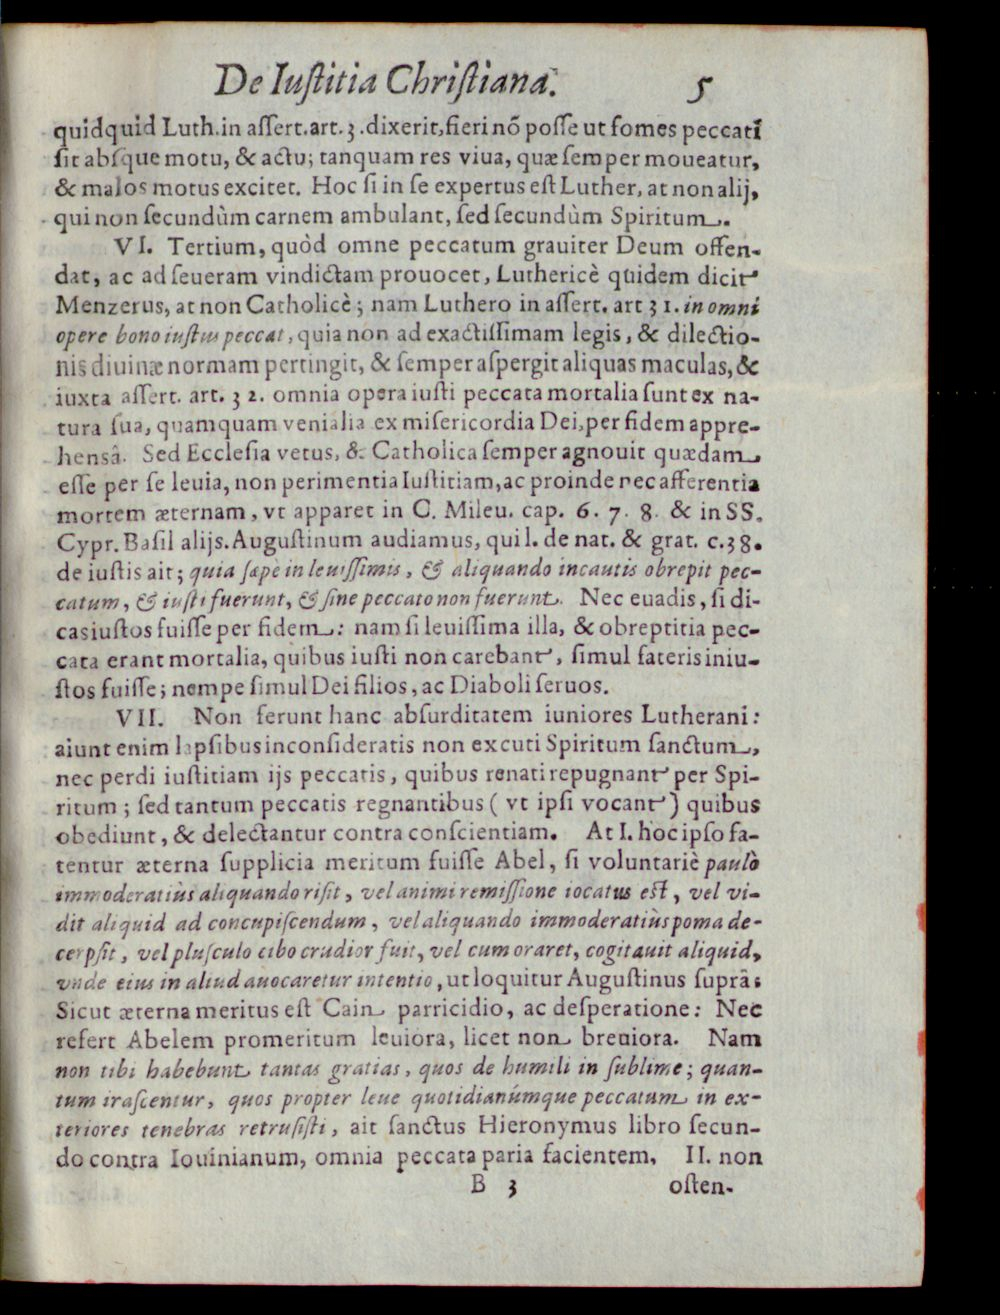 De Iuſtitia Chriſtiana. 5
quidquid Luth. in aſſert. art. 3. dixerit, fieri nõ poſſe ut fomes peccati
ſit abſque motu, & actu; tanquam res viua, quæ ſemper moueatur,
& malos motus excitet. Hoc ſi in ſe expertus eſt Luther, at non alij,
qui non ſecundùm carnem ambulant, ſed ſecundùm Spiritum.
VI. Tertium, quòd omne peccatum grauiter Deum offen-
dat, ac ad ſeueram vindictam prouocet, Luthericè quidem dicit
Menzerus, at non Catholicè; nam Luthero in aſſert. art 31. in omni
opere bono iuſtus peccat, quia non ad exactiſſimam legis, & dilectio-
nis diuinæ normam pertingit, & ſemper aſpergit aliquas maculas, &
iuxta aſſert. art. 32. omnia opera iuſti peccata mortalia ſunt ex na-
tura ſua, quamquam venialia ex miſericordia Dei, per fidem appre-
hensâ. Sed Eccleſia vetus, & Catholica ſemper agnouit quædam
eſſe per ſe leuia, non perimentia Iuſtitiam, ac proinde nec afferentia
mortem æternam, vt apparet in C. Mileu. cap. 6. 7. 8. & in SS.
Cypr. Baſil alijs. Auguſtinum audiamus, qui l. de nat. & grat. c. 38.
de iuſtis ait; quia ſæpe in leuiſſimis, & aliquando incautis obrepit pec-
catum, & iuſti fuerunt, & ſine peccato non fuerunt. Nec euadis, ſi di-
cas iuſtos fuiſſe per fidem: nam ſi leuiſſima illa, & obreptitia pec-
cata erant mortalia, quibus iuſti non carebant, ſimul fateris iniu-
ſtos fuiſſe; nempe ſimul Dei filios, ac Diaboli ſeruos.
VII. Non ferunt hanc abſurditatem iuniores Lutherani:
aiunt enim lapſibus inconſideratis non excuti Spiritum ſanctum,
nec perdi iuſtitiam ijs peccatis, quibus renati repugnant per Spi-
ritum; ſed tantum peccatis regnantibus ( vt ipſi vocant ) quibus
obediunt, & delectantur contra conſcientiam. At I. hoc ipſo fa-
tentur æterna ſupplicia meritum fuiſſe Abel, ſi voluntariè paulò
immoderatiùs aliquando riſit, vel animi remiſſione iocatus eſt, vel vi-
dit aliquid ad concupiſcendum, vel aliquando immoderatiùs poma de-
cerpſit, vel pluſculo cibo crudior fuit, vel cum oraret, cogitauit aliquid,
vnde eius in aliud auocaretur intentio, ut loquitur Auguſtinus ſuprà:
Sicut æterna meritus eſt Cain parricidio, ac deſperatione: Nec
refert Abelem promeritum leuiora, licet non breuiora. Nam
non tibi habebunt tantas gratias, quos de humili in ſublime; quan-
tum iraſcentur, quos propter leue quotidianúmque peccatum in ex-
teriores tenebras retruſiſti, ait ſanctus Hieronymus libro ſecun-
do contra Iouinianum, omnia peccata paria facientem. II. non
B 3 oſten-